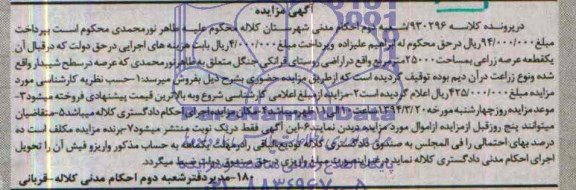 آگهی مزایده
در پرونده کلاسه ۹۳۰۲۹۶/ش دوم احکام مدنی شهرستان کلاله محکوم علیه طاهر نورمحمدی محکوم است بپرداخت
مبلغ ۹۴/۰۰۰/۰۰۰ ریال در حق محکوم له ابراهیم علیزاده و پرداخت مبلغ ۴/۰۰۰/۰۰۰ ریال بابت هزینه های اجرایی در حق دولت که در قبال آن
یکقطعه عرصه زراعی بمساحت ۲۵۰۰۰ متر مربع واقع در اراضی روستای قرانکی جنگل متعلق به طاهر نورمحمدی که عرصه در سطح شیبدار واقع
شده ونوع زراعت در آن دیم بوده توقیف گردیده است که از طریق مزایده حضوری بشرح ذیل بفروش میرسد:۱-حسب نظریه کارشناسی مورد
مزایده مبلغ ۴۲۵/۰۰۰/۰۰۰ ریال اعلام گردیده است۲-مزایده از مبلغ اعلامی کارشناسی شروع وبه بالاترین قیمت پیشنهادی فروخته میشود۳-
موعد مزایده روز چهارشنبه مورخه ۱۳۹۴/۳/۲۰ ساعت ۱۰ الی ۱۱ ظهر میباشد۴-مکان مزایده اجرای احکام دادگستری کلاله میباشد۵-متقاضیان
میتوانند پنج روز قبل از مزایده از اموال مورد مزایده دیدن نمایند۶-این آگهی فقط در یک نوبت منتشر میشود۷-برنده مزایده مکلف است ده
درصد بهای احتمالی را فی المجلس به صندوق دادگستری کلاله تودیع الباقی را در مهلت یکماهه به حساب مذکور واریز و فیش آن را تحویل
اجرای احکام مدنی دادگستری کلاله نماید در غیر اینصورت مبلغ واریزی در حق صندوق دولت ضبط میگردد.
۱۸-مدیر دفتر شعبه دوم احکام مدنی کلاله-قربانی